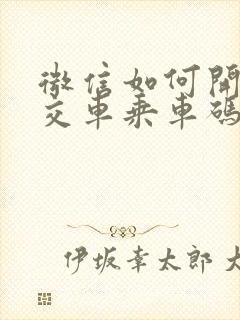 微信如何開
交車乘車碼
伊坂幸太郎 大